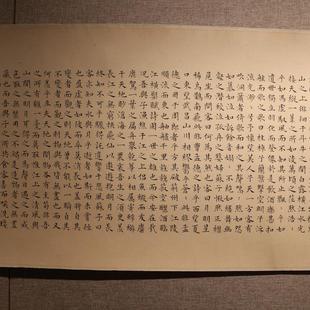 山之上徘徊於斗牛之間白露橫江水光
接天縱一葦之所如凌萬頃之茫然浩浩
乎如馮虛御風而不知其所止飄飄乎如
遺世獨立羽化而登仙於是飲酒樂甚扣
舷而歌之歌曰桂棹兮蘭槳擊空明兮泝
流光渺渺兮予懷望美人兮天一方客有
吹洞簫者倚歌而和之其聲嗚嗚然如怨
如慕如泣如訴餘音嫋嫋不絕如縷舞幽
壑之潛蛟泣孤舟之嫠婦蘇子愀然正襟
危坐而問客曰何為其然也客曰月明星
稀烏鵲南飛此非曹孟德之詩乎西望夏
口東望武昌山川相繆鬱乎蒼蒼此非孟
德之困於周郎者乎方其破荊州下江陵
順流而東也舳艫千里旌旗蔽空釃酒臨
江橫槊賦詩固一世之雄也而今安在哉
況吾與子漁樵於江渚之上侶魚蝦而友麋鹿
駕一葉之扁舟舉匏樽以相屬寄蜉蝣
於天地渺滄海之一粟哀吾生之須臾羨
長江之無窮挾飛仙以遨遊抱明月而
長終知不可乎驟得託遺響於悲風蘇子曰
客亦知夫水與月乎逝者如斯而未嘗往
也盈虛者如彼而卒莫消長也蓋將自其
變者而觀之則天地曾不能以一瞬自其
不變者而觀之則物與我皆無盡也而又
何羨乎且夫天地之間物各有主苟非吾
之所有雖一毫而莫取惟江上之清風與
山間之明月耳得之而為聲目遇之而成
色取之無禁用之不竭是造物者之無盡
藏也而吾與子之所共食客喜而笑洗盞